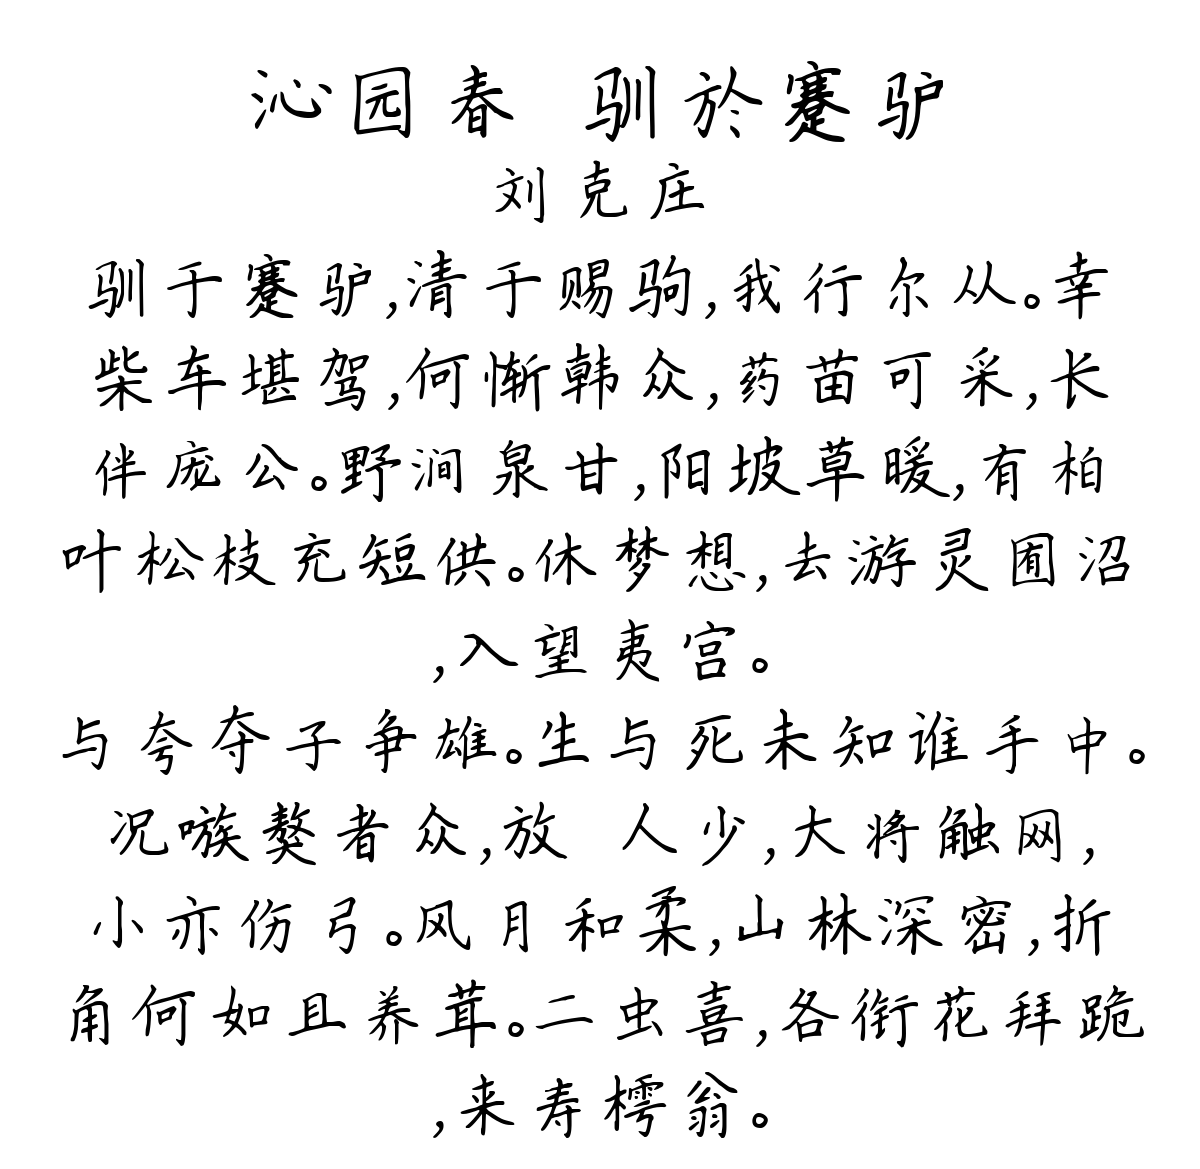 沁园春 驯於蹇驴
刘克庄
驯于蹇驴,清于赐驹,我行尔从。幸
柴车堪驾,何惭韩众,药苗可采,长
伴庞公。野涧泉甘,阳坡草暖,有柏
叶松枝充短供。休梦想,去游灵囿沼
,入望夷宫。
与夸夺子争雄。生与死未知谁手中。
况嗾獒者众,放 人少,大将触网,
小亦伤弓。风月和柔,山林深密,折
角何如且养茸。二虫喜,各衔花拜跪
,来寿樗翁。